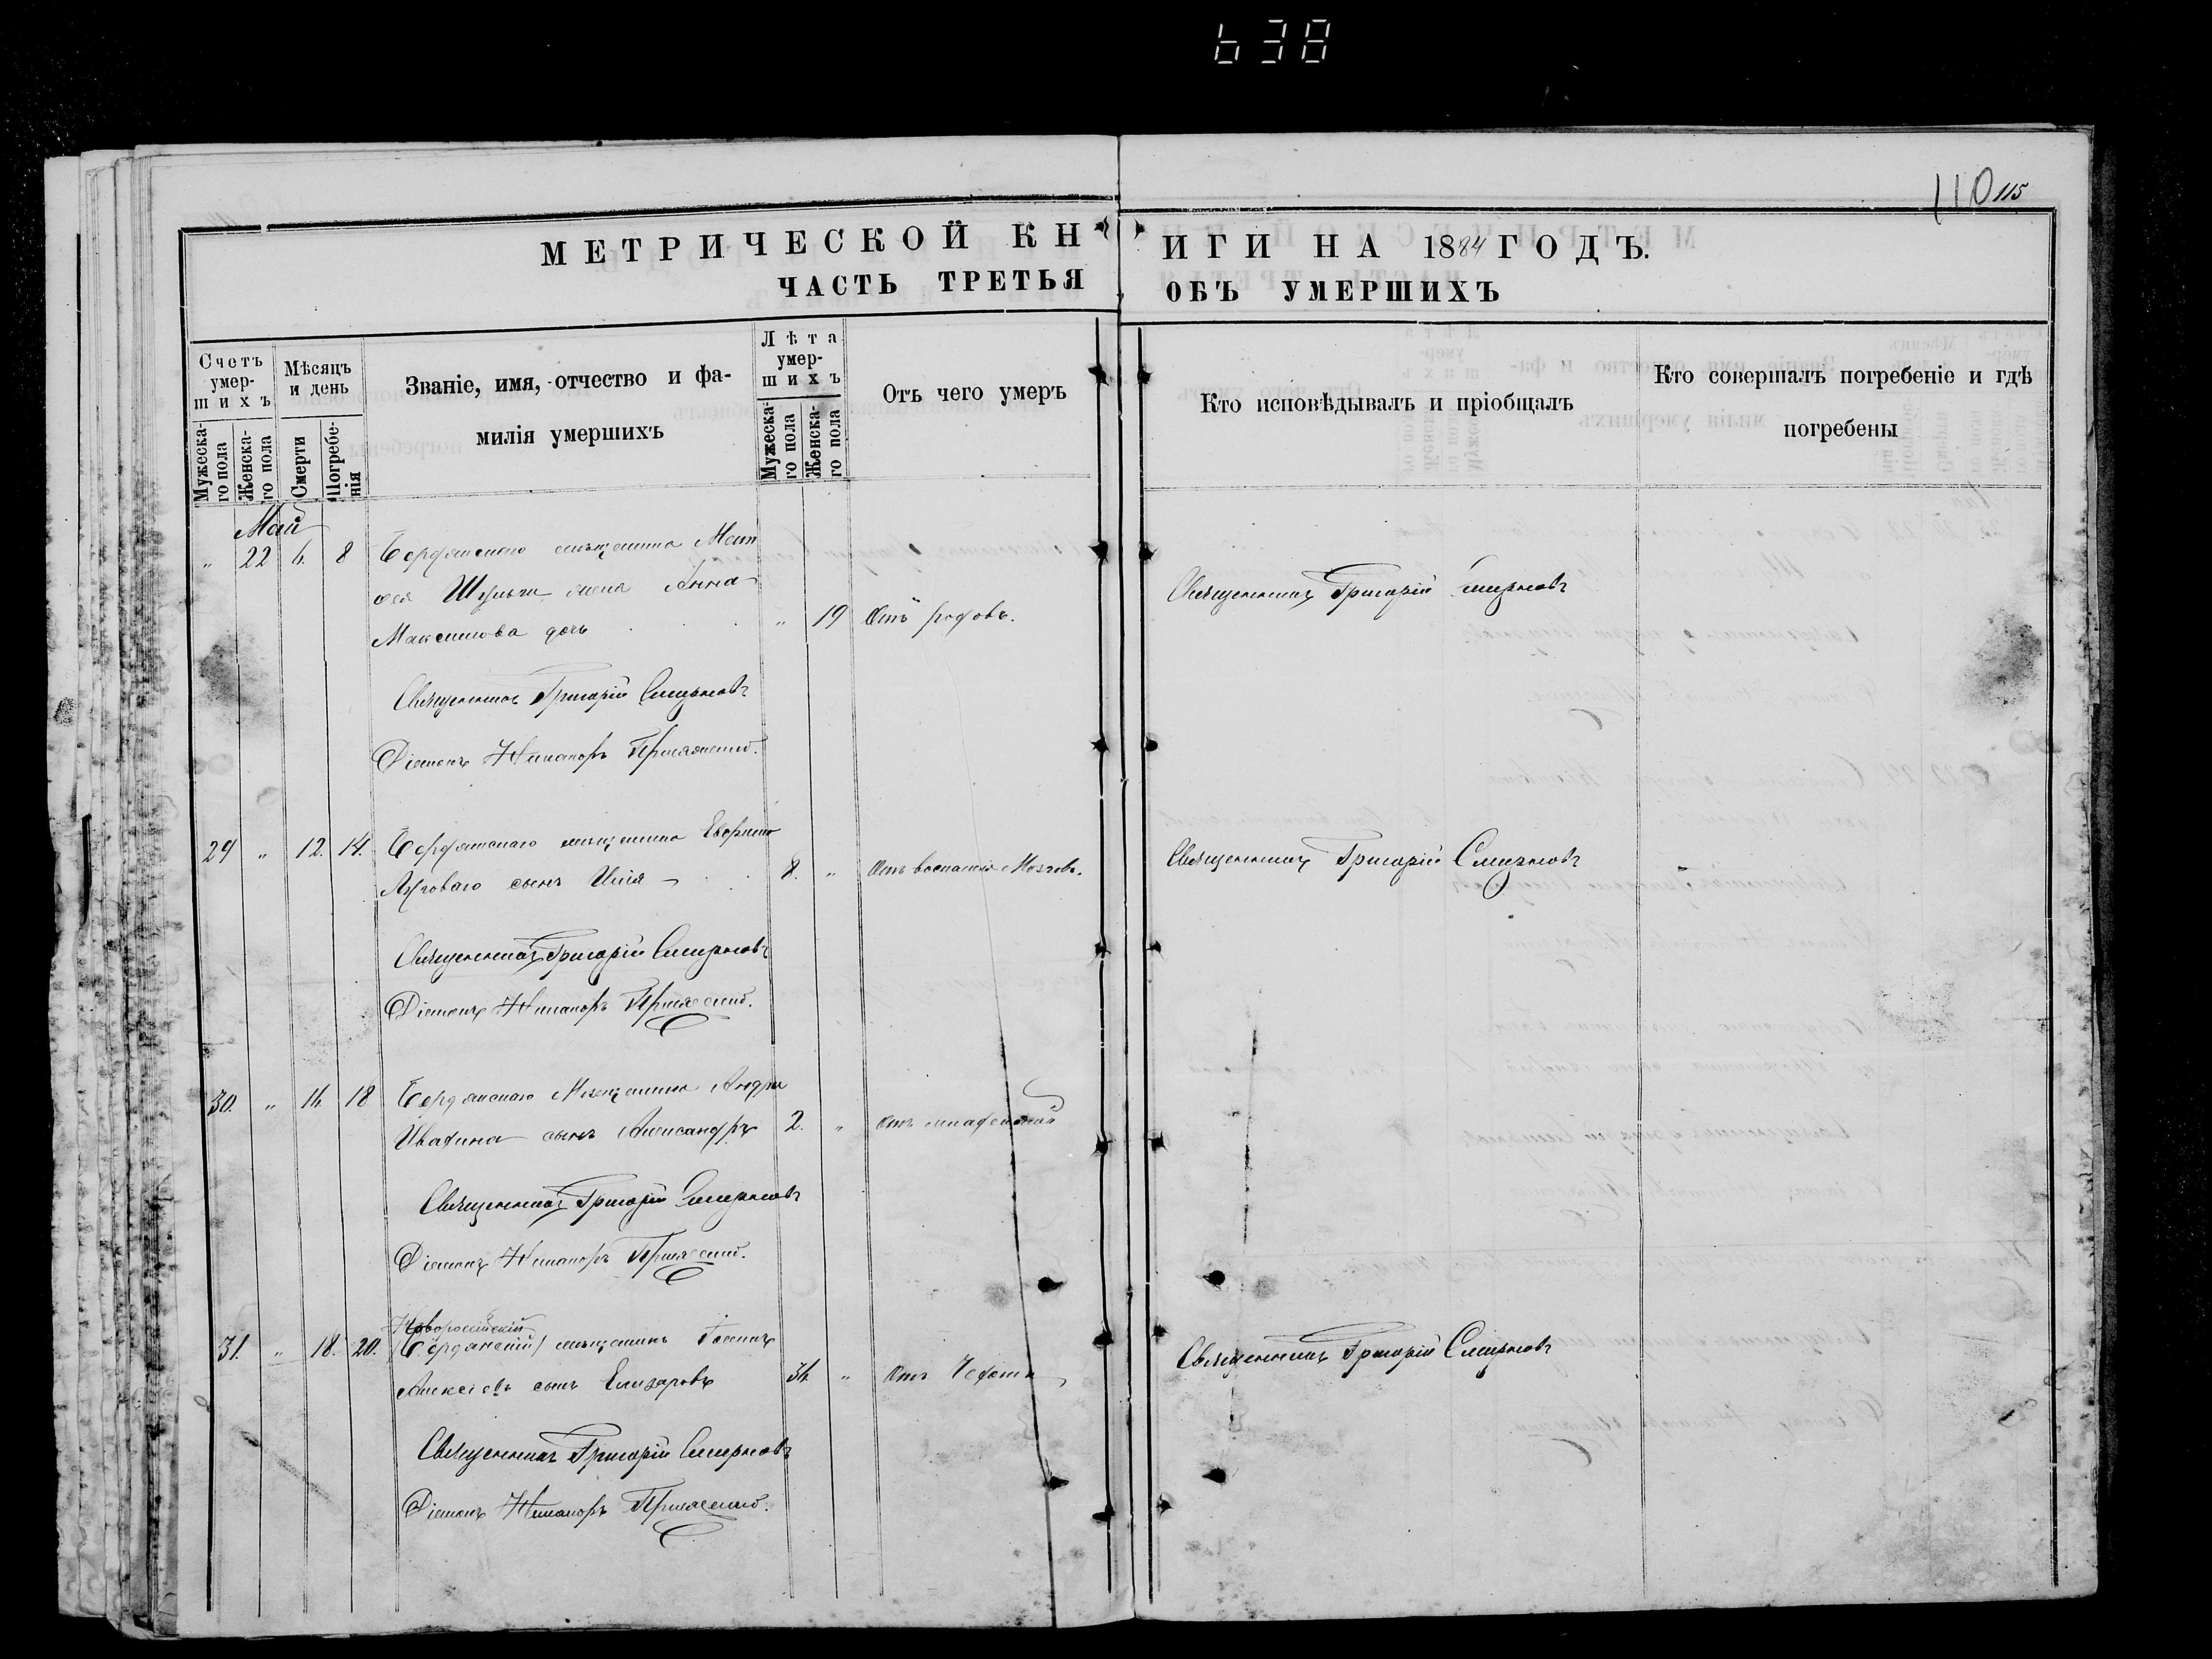 638
110 115
МЕТРИЧЕСКОЙ КНИГИ НА 1884 ГОДЪ.
ЧАСТЬ ТРЕТЬЯ ОБЪ УМЕРШИХЪ
Счетъ умершихъ
Мужескаго пола
Женскаго пола
Мѣсяцъ и день
Смерти
Погребенія
Званіе, имя, отчество и фамилія умершихъ
Лѣта умершихъ
Мужескаго пола
Женскаго пола
Отъ чего умеръ
Кто исповѣдывалъ и пріобщалъ
Кто совершалъ погребеніе и гдѣ погребены
Май
" 22 6. 8 Бердянскаго мѣщанина Мат
ѳея Шульги жена Анна
Максимова дочь " 19 Отъ родовъ. Священникъ Григорій Смирновъ
Священникъ Григорій Смирновъ
Діаконъ Никаноръ
29 " 12. 14. Бердянскаго мѣщанина
сынъ Илія 8. " Отъ воспаленія Мозговъ. Священникъ Григорій Смирновъ
Священникъ Григорій Смирновъ
Діаконъ Никаноръ
30. " 16 18 Бердянскаго Мѣщанина Андрея
сынъ Александръ 2. " Отъ младенской
Священникъ Григорій Смирновъ
Діаконъ Никаноръ
Новоросійскій
31. " 18. 20. (Бердянскій) мѣщанинъ
Алексѣевъ сынъ Елизаровъ 36 " Отъ Чахотки Священникъ Григорій Смирновъ
Священникъ Григорій Смирновъ
Діаконъ Никаноръ